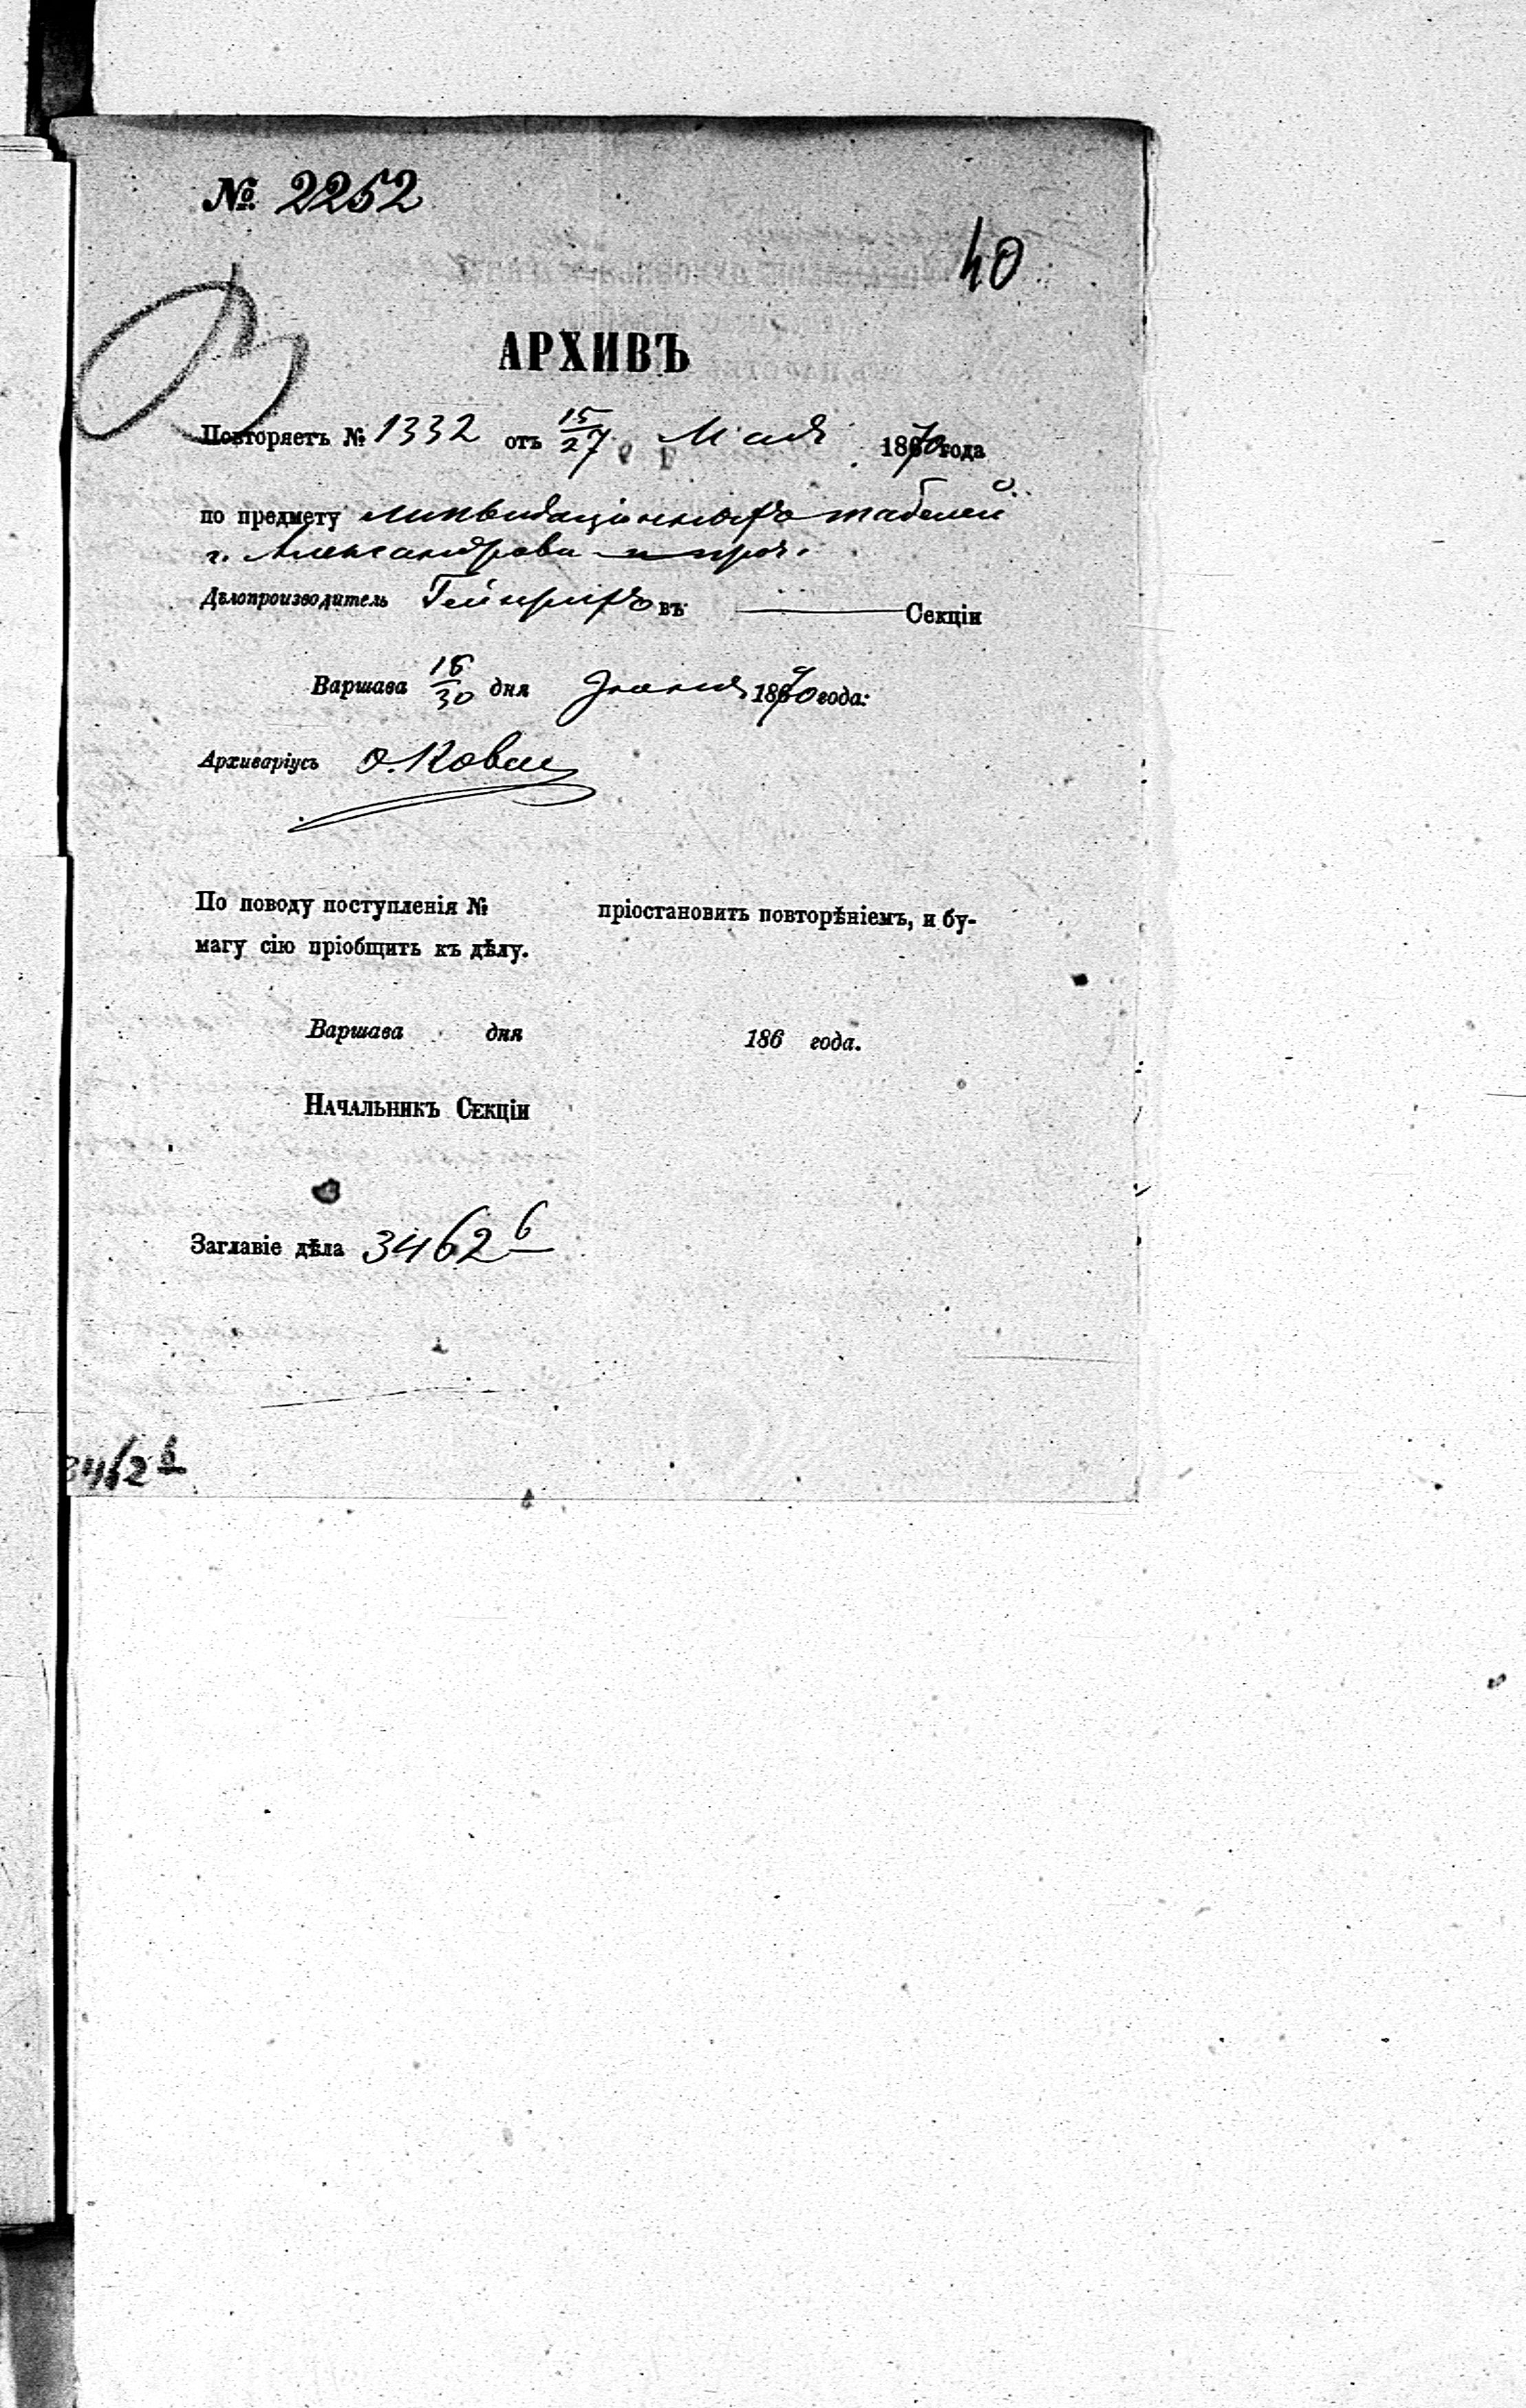 № 2252
40
АРХИВЪ
Повторяетъ № 1332 отъ 15/27 Мая 1870 года
по предмету ликвидаціонныхъ табелей
г. Александрова и проч.
Дѣлопроизводитель Гейнрихъ въ ——— Секціи
Варшава 18/30 дня Іюня 1870 года:
Архиваріусъ
По поводу поступленія № пріостановить повторѣніемъ, и бу-
магу сію пріобщить къ дѣлу.
Варшава дня 186 года.
Начальникъ Секціи
Заглавіе дѣла 3462 б
3462 б